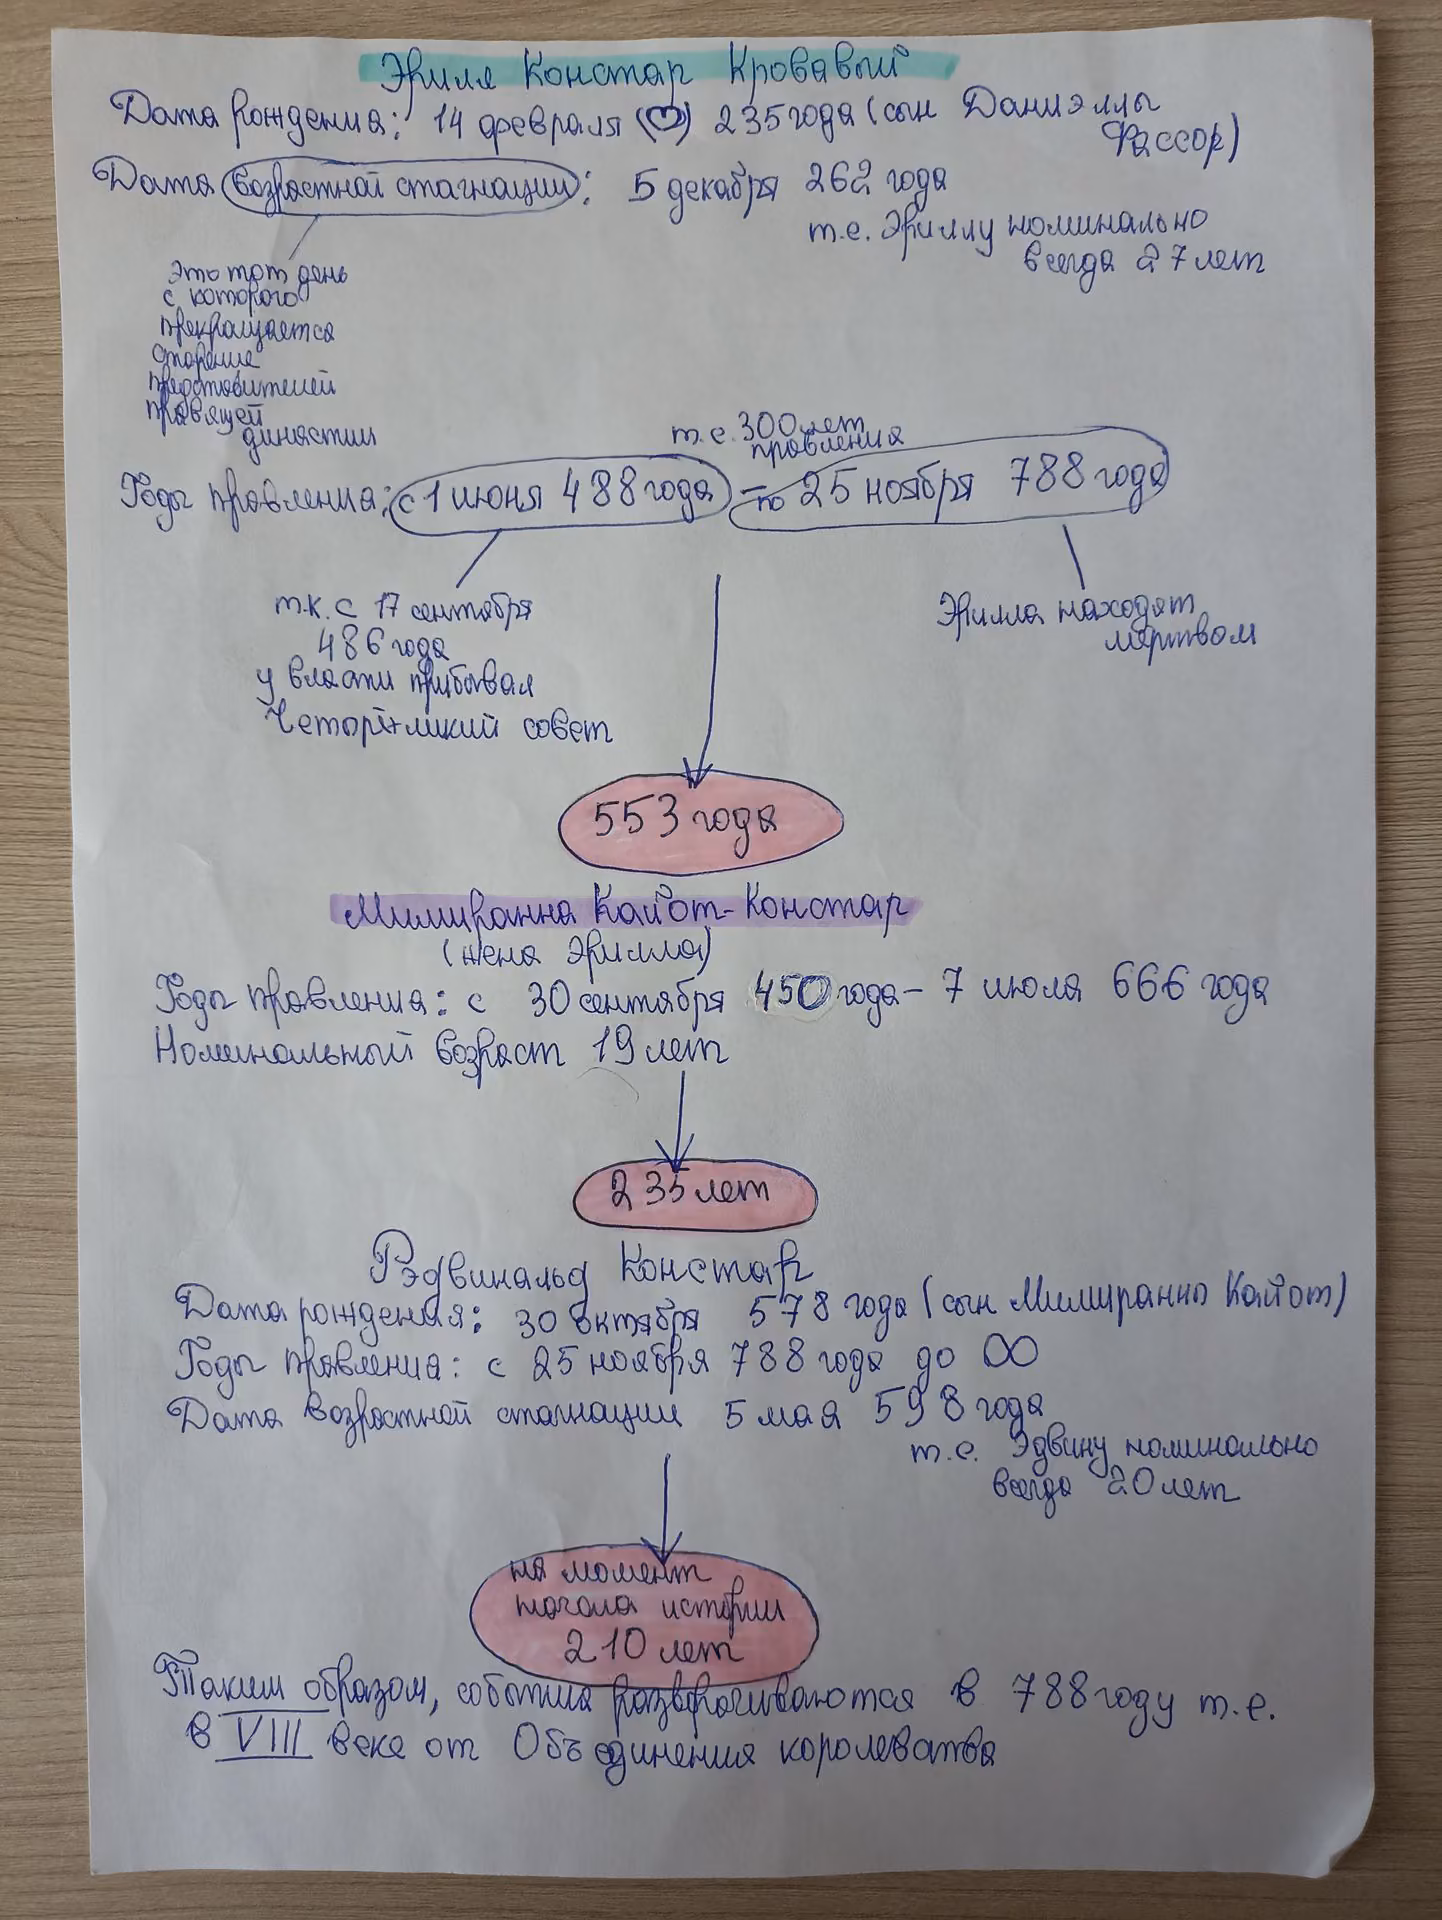 Эрилл Констар Кровавый
Дата рождения: 14 февраля (♡) 235 года (сын Даниэллы
Фассор)
Дата возрастной стагнации: 5 декабря 262 года
т.е. Эриллу номинально
всегда 27 лет
Это тот день
с которого
прекращается
старение
представителей
правящей
династии
т.е. 300 лет
правления
Годы правления: с 1 июня 488 года – по 25 ноября 788 года
т.к. с 17 сентября
486 года
у власти прибывал
совет
Эрилла находят
мёртвом
553 года
Милиранна Кайот-Констар
(жена Эрилла)
Годы правления: с 30 сентября 450 года – 7 июля 666 года
Номинальный возраст 19 лет
235 лет
Рэдвинальд Констар
Дата рождения: 30 октября 578 года (сын Милиранны Кайот)
Годы правления: с 25 ноября 788 года до ∞
Дата возрастной стагнации 5 мая 598 года
т.е. Эдвину номинально
всегда 20 лет
на момент
начала истории
210 лет
Таким образом, события разворачиваются в 788 году т.е.
в VIII веке от Объединения королевства